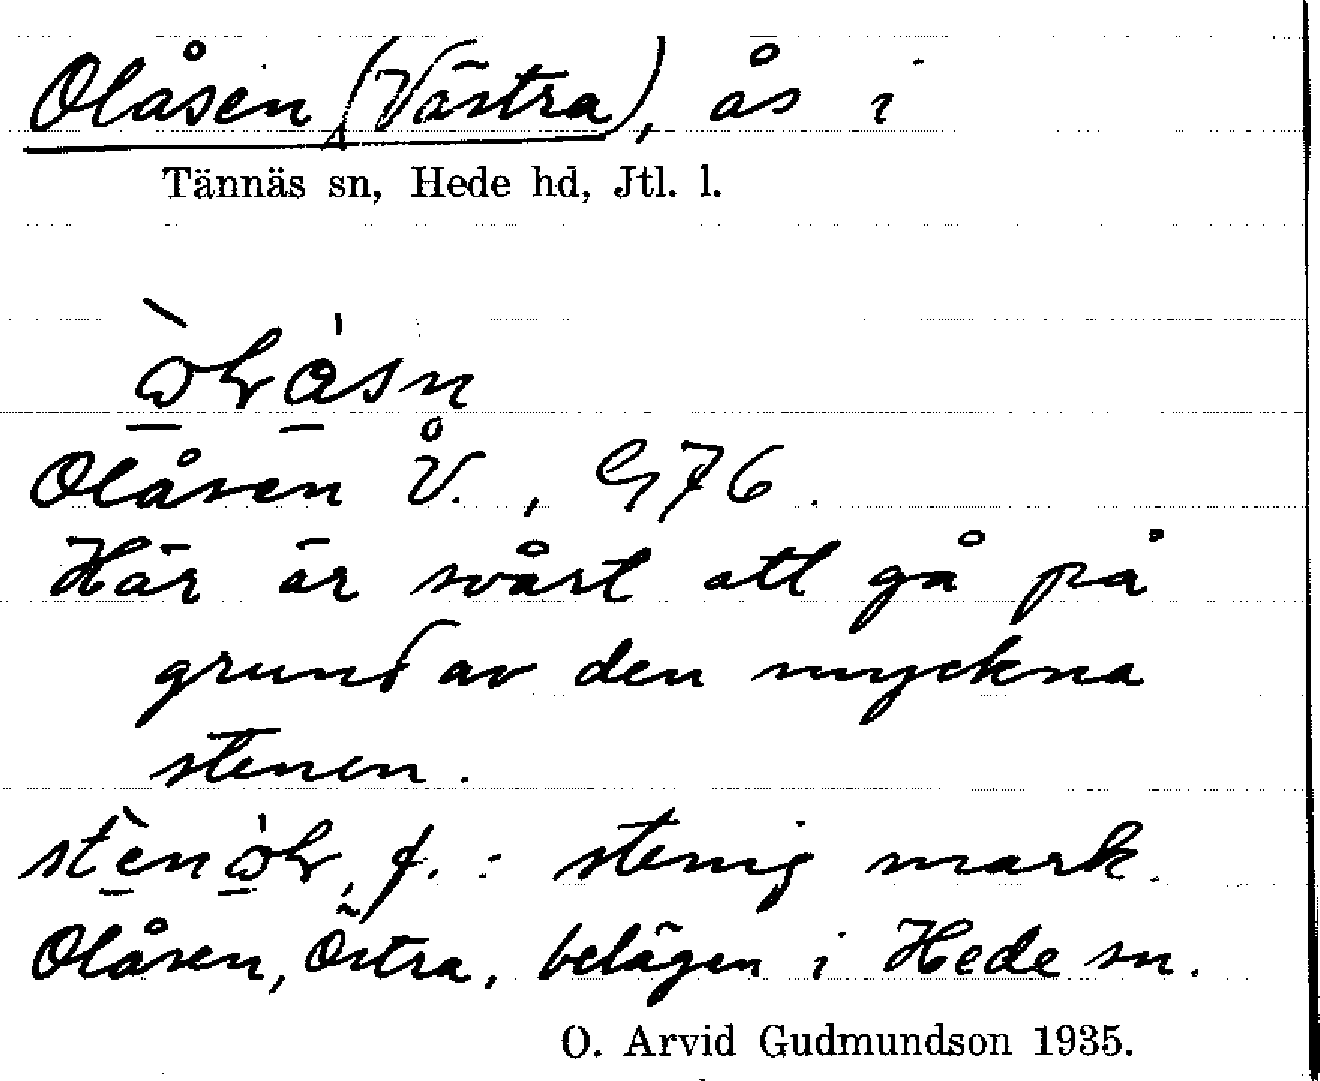 Olåsen (Västra), ås i
Tännäs sn, Hede hd, Jtl. l.
Olåsen V., G76.
Här är svårt att gå på
grund av den myckna
stenen.
f. : stenig mark.
Olåsen, Östra, belägen i Hede sn.
O. Arvid Gudmundson 1935.